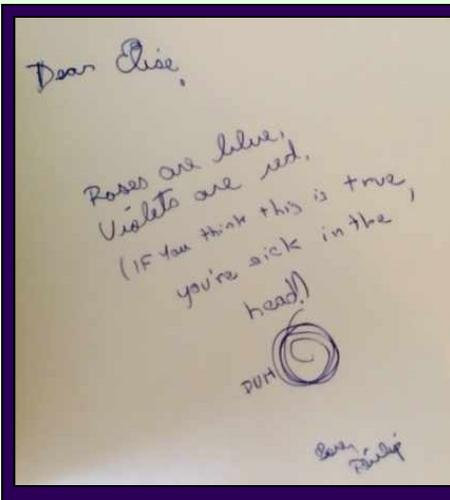 Dear Elise,
Roses are blue,
Violets are red.
(IF You think this is true,
you're sick in the
head!)
DUH
Love,
Philip